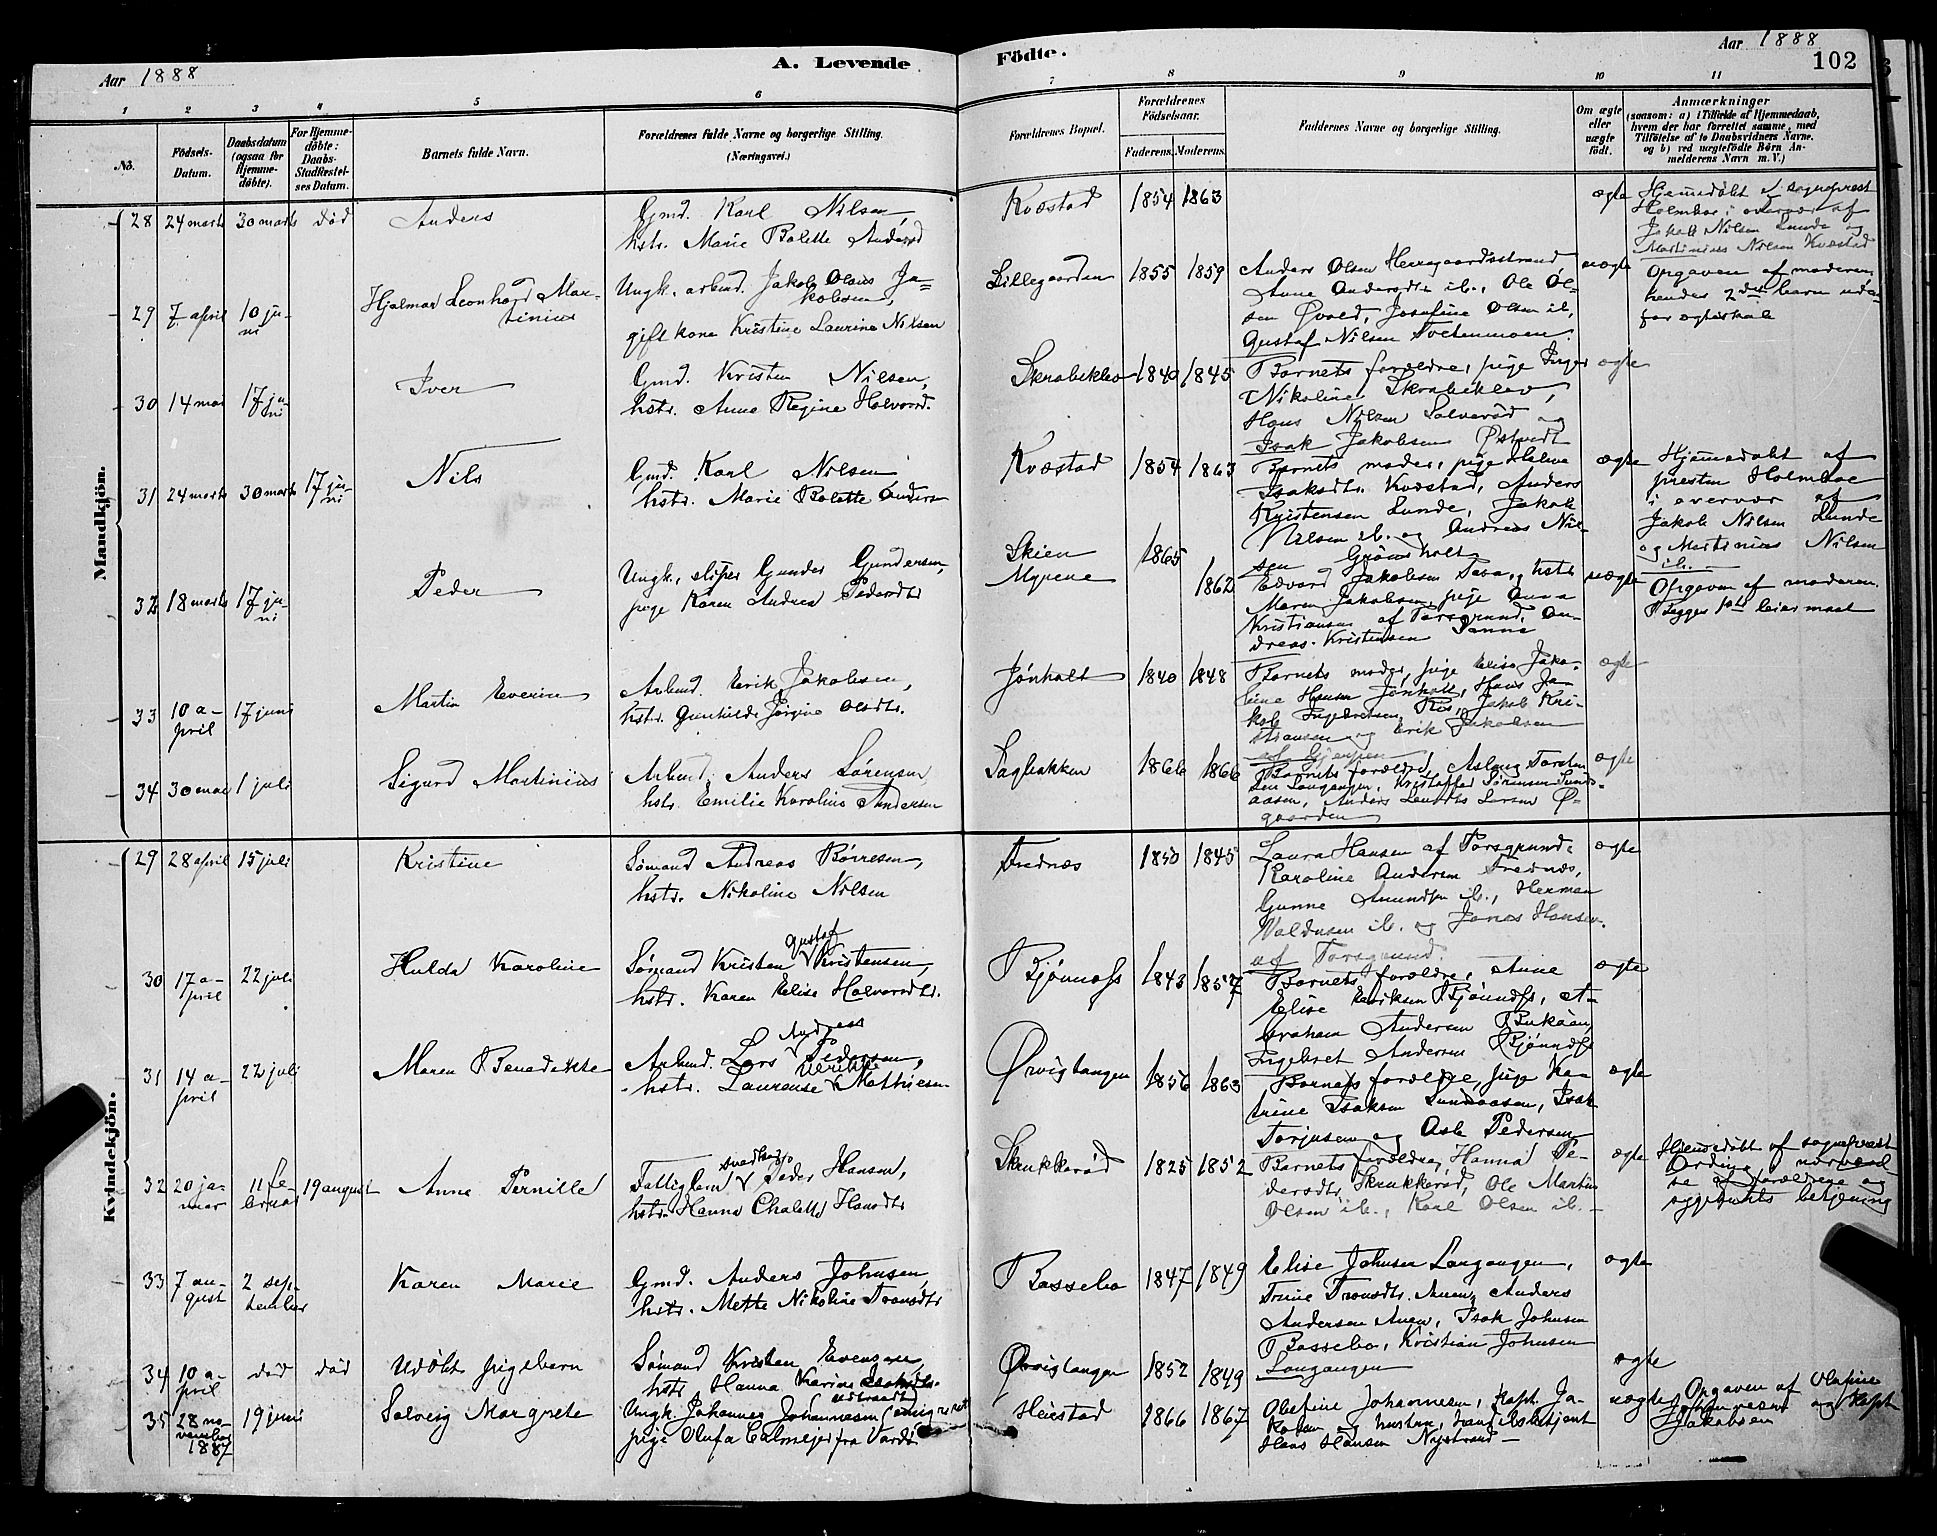 Aar 1888
A. Levende
Födte.
Aar 1888
102
1 2 3 4 5 6 7 8 9 10 11
No.
Födsels-Datum.
Daabsdatum (ogsaa for Hjemmedöbte).
For Hjemmedöbte: Daabs-Stadfæstelses Datum.
Barnets fulde Navn.
Forældrenes fulde Navne og borgerlige Stilling. (Næringsvei.)
Forældrenes Bopæl.
Forældrenes Födselsaar.
Faderens. Moderens.
Faddernes Navne og borgerlige Stilling.
Om ægte eller uægte födt.
Anmærkninger
(saasom: a) i Tilfælde af Hjemmedaab, hvem der har forrettet samme, med Tilföielse af to Daabsvidners Navne, og b) ved uægtefödte Börn Anmelderens Navn m.V.)
Mandkjön.
28 24 marts 30 marts död Anders
Gmd. Karl Nilsen,
hstr. Marie Bolette Andersd
Kvæstad 1854 1863 ægte
Hjemmedöbt af sogneprest
Holmboe i overvær af
Jakob Nilsen Lunde og
Martinius Nilsen Kvæstad
29 7 april 10 juni Hjalmar Leonhard Martinius
Ungk. arbmd. Jakob Olaus Jakobsen,
gift kone Kristine Laurine Nilsen
Lillegaarden 1855 1859
Anders Olsen Herregaardsstrand
Anne Andersdtr ib., Ole Olsen
Øvald, Josefine Olsen ib,
Gustaf Nilsen Toltenmoen.
uægte
Opgaven af moderen
hendes 2det barn udenfor
ægteskab
30 14 mai 17 juni Iver
Gmd. Kristen Nilsen,
hstr. Anne Regine Halvorsd.
Skrabeklev 1840 1845
Barnets forældre, pige Inger
Nikoline Skrabeklev,
Hans Nilsen Salverød og
Isak Jakobsen Østvedt
ægte
31 24 marts 30 marts 17 juni Nils
Gmd. Karl Nilsen
hstr. Marie Bolette Andersn
Kvæstad 1854 1863
Barnets moder, pige Helene
Isaksdtr. Kvæstad, Anders
Kristensen Lunde, Jakob
Nilsen ib. og Andreas Nilsen
Grönsholt
ægte
Hjemmedöbt af
presten Holmboe
i overvær af
Jakob Nilsen Lunde
og Martinius Nilsen
ib.
32 18 marts 17 juni Peder
Ungk., sliper Gunder Gundersen,
pige Karen Andrea Pedersdtr
Skien
Myrene 1865 1862
Edvard Jakobsen hstr
Maren Jakobsen, pige Anna
Kristiansen af Porsgrund, Andreas
Kristensen
uægte
Opgaven af moderen.
Begges 1ste leiermaal
33 10 april 17 juni Martin Everin
Arbmd. Erik Jakobsen,
hstr. Gunhilde Jörgine Olsdtr.
Jönholt 1840 1848
Barnets moder, pige Elise Jakobine
Hansen Jönholt, Hans Jakob
Ingebretsen Ris, Jakob Kristiansen
og Erik Jakobsen
af Gjerpen
ægte
34 30 mai 1 juli Sigurd Martinius
Arbmd. Anders Sörensen
hstr. Emilie Karoline Andersen
Sagbakken 1866 1866
Barnets forældre, Aslaug Torsten
sen Langangen, Kristoffer Sörensen Sundsaasen,
Anders Larsen Øgaarden
ægte
Kvindekjön.
29 28 april 15 juli Kristine
Sömand Andreas Börresen,
hstr. Nikoline Nilsen
Frednæs 1850 1845
Laura Hansen af Porsgrund,
Karoline Andersen Frednæs,
Gunne Amundsen ib., Herman
Valdusen ib. og Jonas Hansen
af Porsgrund.
ægte
30 17 april 22 juli Hulda Karoline
Sömand Kristen Gustaf Kristensen,
hstr. Karen Elise Halvorsdtr.
Bjönnæss 1843 1857
Barnets forældre, Anne
Elise Eriksen Bjönnæss, Abraham
Andersen
Ingebret Andersen Bjönnæss
ægte
31 14 april 22 juli Maren Benedikte
Arbmd. Lars Andreas Pedersen,
hstr. Laurense Ulrikke Mathisen
Ørvigtangen 1856 1863
Barnets forældre, pige Katrine
Isaksen Sundsaasen, Isak
Torjusen og Asle Pedersen
ægte
32 20 januar 11 februar 19 august Anne Pernille
Fattiglem Peder Hansen,
hstr. Hanna Hansdtr
Skrukkeröd 1825 1852
Barnets forældre, Hanna Pedersdtr.
Skrukkeröd, Ole Martin
Olsen ib., Karl Olsen ib.
ægte
Hjemmedöbt af sogneprest
Ording i nærværelse
af forældrene og
opgjordts betjening
33 7 august 2 september Karen Marie
Gmd. Anders Johnsen,
hstr. Mette Nikoline Tronsdtr
Bassebo 1847 1849
Elise Johnsen Langangen,
Trine Tronsdtr. Auen, Anders
Andersen Auen, Isak Johnsen
Bassebo, Kristian Johnsen
Langangen
ægte
34 10 april död död Udöbt pigebarn
Sömand Kristen Evensen,
hstr Hanna Karine Isaksdtr.
Ørvigtangen 1852 1849 ægte
35 28 november 1887 19 juni Solveig Margrete
Ungk. Johannes Johannesen (emigreret
pige Olufa Calmeyer fra Vardö
Heistad 1866 1867
Olefine Johannesen, kapt. Jakobsen
og hustru, handelsbetjent
Hans Hansen Nystrand
uægte
Opgaven af Olefine
Johannesen og kapt
Jakobsen